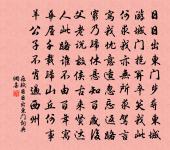 日日出東門步尋東城
遊城門抱關卒笑我此
何求我亦無所求駕言
寫我憂意適忽忘返路
窮乃歸休懸知百歲後
父老說故侯古來賢達
人此路誰不由百年寓
華屋千載歸山丘何事
羊公子不肯過西州
日日出東門詞典
網書